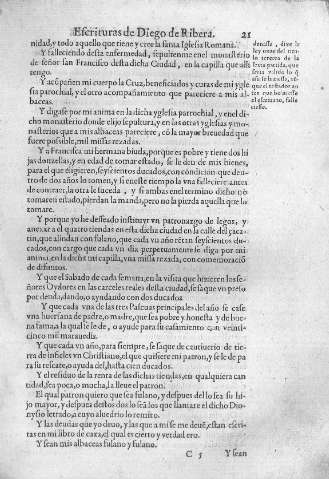 Escrituras de Diego de Ribera. 21
nidad, y todo aquello que tiene y cree la santa Iglesia Romana.
Y falleciendo desta enfermedad, sepultenme en el monasterio
de señor san Francisco desta dicha Ciudad, en la capilla que alli
tengo.
Y acompañen mi cuerpo la Cruz, beneficiados y curas de mi ygle
sia parochial, y el otro acompañamiento que pareciere a mis al-
baceas.
Y digase por mi anima en la dicha yglesia parrochial, y en el di
cho monasterio donde elijo sepultura, y en las otras yglesias y mo-
nasterios que a mis albaceas pareciere, cō la mayor breuedad que
fuere possible, mil missas rezadas.
Y a Francisca mi hermana biuda, porque es pobre y tiene dos hi
jas donzellas, y en edad de tomar estado, se le den de mis bienes,
para el que eligieren, seyscientos ducados, con condicion que den-
tro de dos años lo tomen, y si en este tiempo la vna falleciere antes
de contraer, la otra le suceda, y si ambas en el termino dicho no
tomaren estado, pierdan la manda, pero no la pierda aquella que lo
tomare.
Y porque yo he desseado instituyr vn patronazgo de legos, y
anexar a el quatro tiendas en esta dicha ciudad en la calle del
que alindan con fulano, que cada vn año rētan seyscientos du-
cados, con cargo que cada vn dia perpetuamente se diga por mi
anima, en la dicha mi capilla, vna missa rezada, con comemoraciō
de difuntos.
Y que el Sabado de cada semana, en la visita que hizieren los se-
ñores Oydores en las carceles reales desta ciudad, se saque vn preso
por deuda, dando, o ayudando con dos ducados.
Y que cada vna de las tres Pascuas principales del año se case
vna huerfana de padre, o madre, que sea pobre y honesta y de bue-
na fama, a la qual se le de, o ayude para su casamiento con veynti-
cinco mil marauedis.
Y que cada vn año, para siempre, se saque de cautiuerio de tie-
rra de infieles vn Christiano, el que quisiere mi patron, y se le de pa
ra su rescate, o ayuda del, hasta cien ducados.
Y el residuo de la renta de las dichas tiendas, en qualquiera can
tidad, sea poca, o mucha, la lleue el patron.
El qual patron quiero que sea fulano, y despues del lo sea su hi
jo mayor, y despues destos dos lo seā los que llamare el dicho Dio-
nysio letrado, a cuyo aluedrio lo remito.
Y las deudas que yo deuo, y las que a mi se me deuē, estan escri-
tas en mi libro de caxa, el qual es cierto y verdadero.
Y sean mis albaceas fulano y fulano.
C 5 Y sean